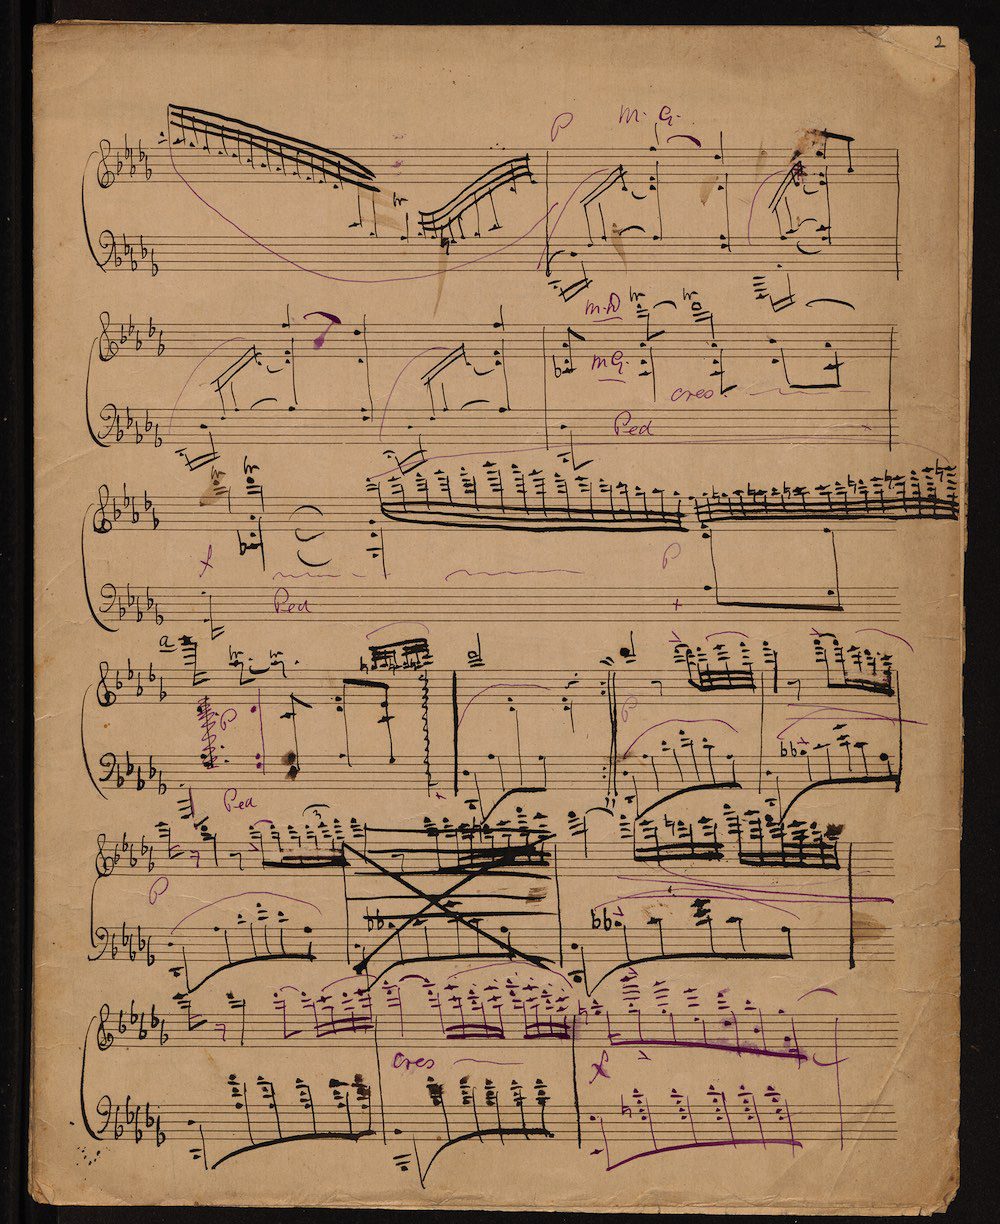 2
P m. G.
m.D
mG.
cres
Ped
P
Ped
P
P
Ped
3
P
cres